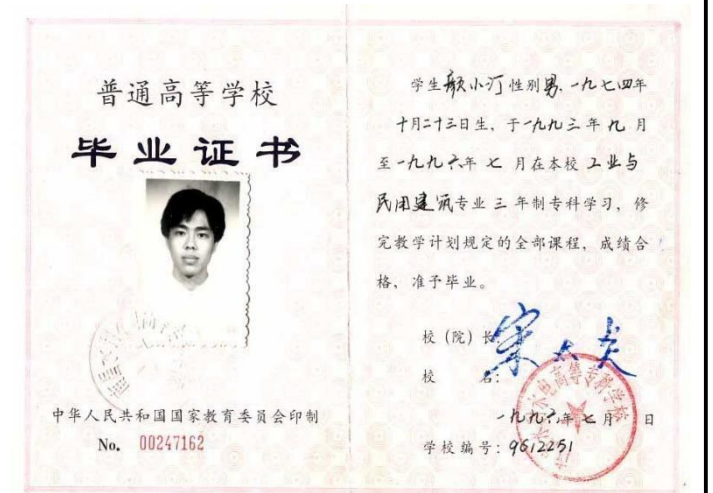 普通高等学校
毕业证书
中华人民共和国国家教育委员会印制
No. 00247162
学生颜小汀性别男，一九七四年
十月二十三日生，于一九九三年九月
至一九九六年七月在本校工业与
民用建筑专业三年制专科学习，修
完教学计划规定的全部课程，成绩合
格，准予毕业。
校（院）长
校 名：
水电高等专科学校
一九九六年七月 日
学校编号：9612251